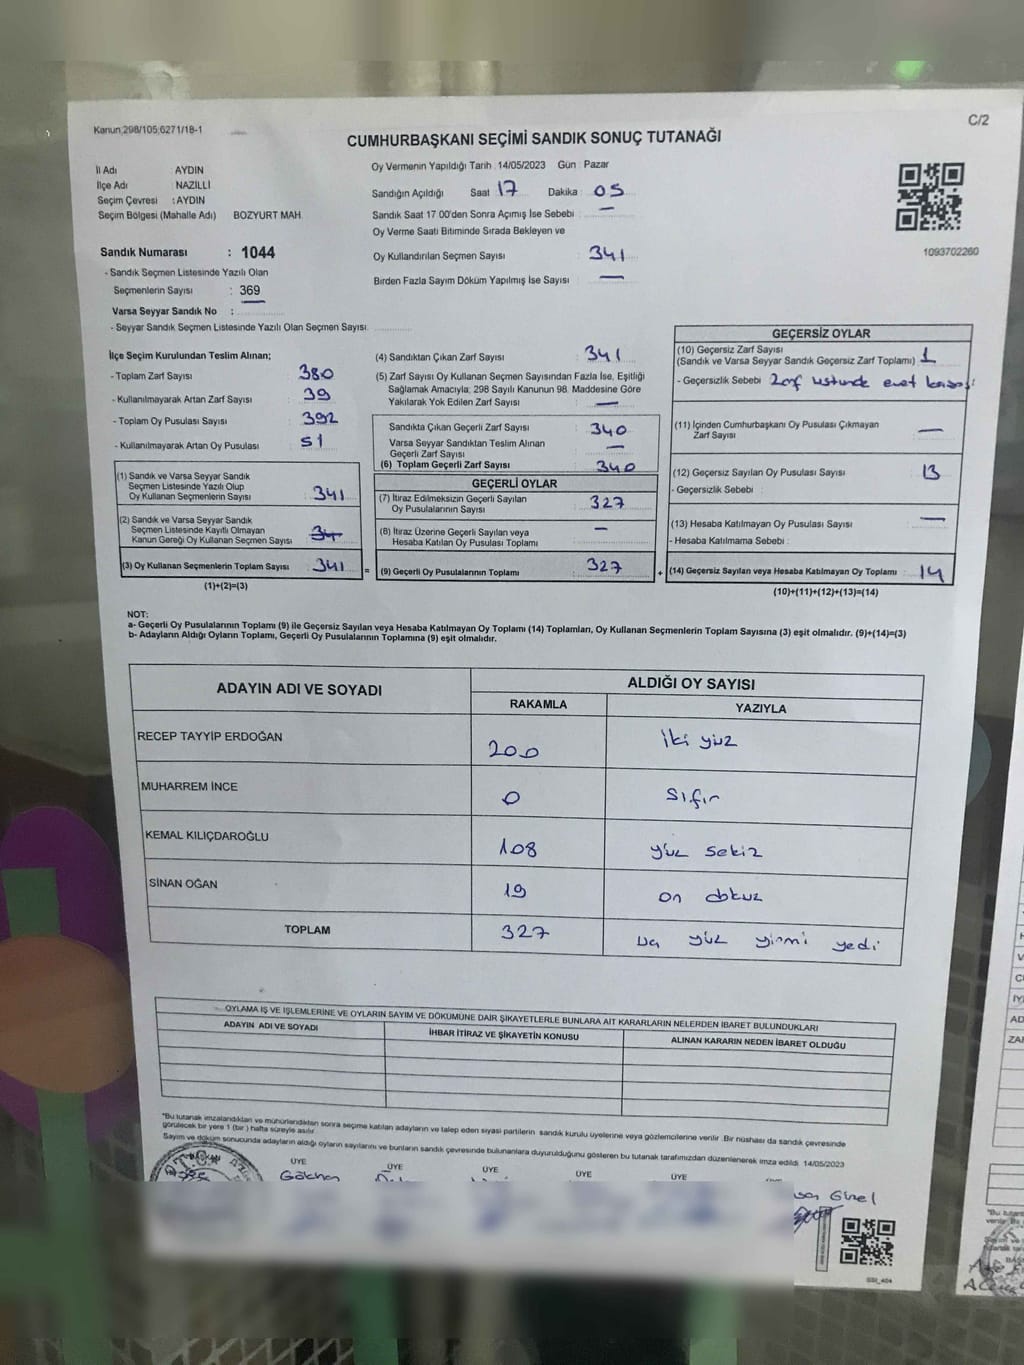 Kanun;298/105;6271/18-1
C/2
CUMHURBAŞKANI SEÇİMİ SANDIK SONUÇ TUTANAĞI
İl Adı : AYDIN
İlçe Adı : NAZİLLİ
Seçim Çevresi : AYDIN
Seçim Bölgesi (Mahalle Adı) BOZYURT MAH.
Sandık Numarası : 1044
- Sandık Seçmen Listesinde Yazılı Olan
Seçmenlerin Sayısı : 369
Varsa Seyyar Sandık No :
- Seyyar Sandık Seçmen Listesinde Yazılı Olan Seçmen Sayısı:
Oy Vermenin Yapıldığı Tarih :14/05/2023 Gün : Pazar
Sandığın Açıldığı Saat 17 Dakika 05
Sandık Saat 17 00'den Sonra Açımış İse Sebebi : —
Oy Verme Saati Bitiminde Sırada Bekleyen ve
Oy Kullandırılan Seçmen Sayısı : 341
Birden Fazla Sayım Döküm Yapılmış İse Sayısı : —
1093702260
İlçe Seçim Kurulundan Teslim Alınan;
- Toplam Zarf Sayısı : 380
- Kullanılmayarak Artan Zarf Sayısı : 39
- Toplam Oy Pusulası Sayısı : 392
- Kullanılmayarak Artan Oy Pusulası : 51
(1) Sandık ve Varsa Seyyar Sandık
Seçmen Listesinde Yazılı Olup
Oy Kullanan Seçmenlerin Sayısı : 341
(2) Sandık ve Varsa Seyyar Sandık
Seçmen Listesinde Kayıtlı Olmayan
Kanun Gereği Oy Kullanan Seçmen Sayısı :
(3) Oy Kullanan Seçmenlerin Toplam Sayısı : 341 =
(1)+(2)=(3)
(4) Sandıktan Çıkan Zarf Sayısı : 341
(5) Zarf Sayısı Oy Kullanan Seçmen Sayısından Fazla İse, Eşitliği
Sağlamak Amacıyla; 298 Sayılı Kanunun 98. Maddesine Göre
Yakılarak Yok Edilen Zarf Sayısı : —
Sandıkta Çıkan Geçerli Zarf Sayısı : 340
Varsa Seyyar Sandıktan Teslim Alınan
Geçerli Zarf Sayısı : —
(6) Toplam Geçerli Zarf Sayısı : 340
GEÇERLİ OYLAR
(7) İtiraz Edilmeksizin Geçerli Sayılan
Oy Pusulalarının Sayısı : 327
(8) İtiraz Üzerine Geçerli Sayılan veya
Hesaba Katılan Oy Pusulası Toplamı : —
(9) Geçerli Oy Pusulalarının Toplamı : 327 +
GEÇERSİZ OYLAR
(10) Geçersiz Zarf Sayısı
(Sandık ve Varsa Seyyar Sandık Geçersiz Zarf Toplamı) : 1
- Geçersizlik Sebebi : Zarf üstünde evet
(11) İçinden Cumhurbaşkanı Oy Pusulası Çıkmayan
Zarf Sayısı : —
(12) Geçersiz Sayılan Oy Pusulası Sayısı : 13
- Geçersizlik Sebebi :
(13) Hesaba Katılmayan Oy Pusulası Sayısı : —
- Hesaba Katılmama Sebebi :
(14) Geçersiz Sayılan veya Hesaba Katılmayan Oy Toplamı : 14
(10)+(11)+(12)+(13)=(14)
NOT:
a- Geçerli Oy Pusulalarının Toplamı (9) ile Geçersiz Sayılan veya Hesaba Katılmayan Oy Toplamı (14) Toplamları, Oy Kullanan Seçmenlerin Toplam Sayısına (3) eşit olmalıdır. (9)+(14)=(3)
b- Adayların Aldığı Oyların Toplamı, Geçerli Oy Pusulalarının Toplamına (9) eşit olmalıdır.
ADAYIN ADI VE SOYADI
ALDIĞI OY SAYISI
RAKAMLA YAZIYLA
RECEP TAYYİP ERDOĞAN 200 iki yüz
MUHARREM İNCE 0 sıfır
KEMAL KILIÇDAROĞLU 108 yüz sekiz
SİNAN OĞAN 19 on dokuz
TOPLAM 327 üç yüz yirmi yedi
OYLAMA İŞ VE İŞLEMLERİNE VE OYLARIN SAYIM VE DÖKÜMÜNE DAİR ŞİKAYETLERLE BUNLARA AİT KARARLARIN NELERDEN İBARET BULUNDUKLARI
ADAYIN ADI VE SOYADI İHBAR İTİRAZ VE ŞİKAYETİN KONUSU ALINAN KARARIN NEDEN İBARET OLDUĞU
*Bu tutanak imzalandıktan ve mühürlendikten sonra seçime katılan adayların ve talep eden siyasi partilerin sandık kurulu üyelerine veya gözlemcilerine verilir .Bir nüshası da sandık çevresinde
görülecek bir yere 1 (bir ) hafta süreyle asılır.
Sayım ve döküm sonucunda adayların aldığı oyların sayılarını ve bunların sandık çevresinde bulunanlara duyurulduğunu gösteren bu tutanak tarafımızdan düzenlenerek imza edildi. 14/05/2023
ÜYE ÜYE ÜYE ÜYE ÜYE
Gökhan
Güzel
SSI_404